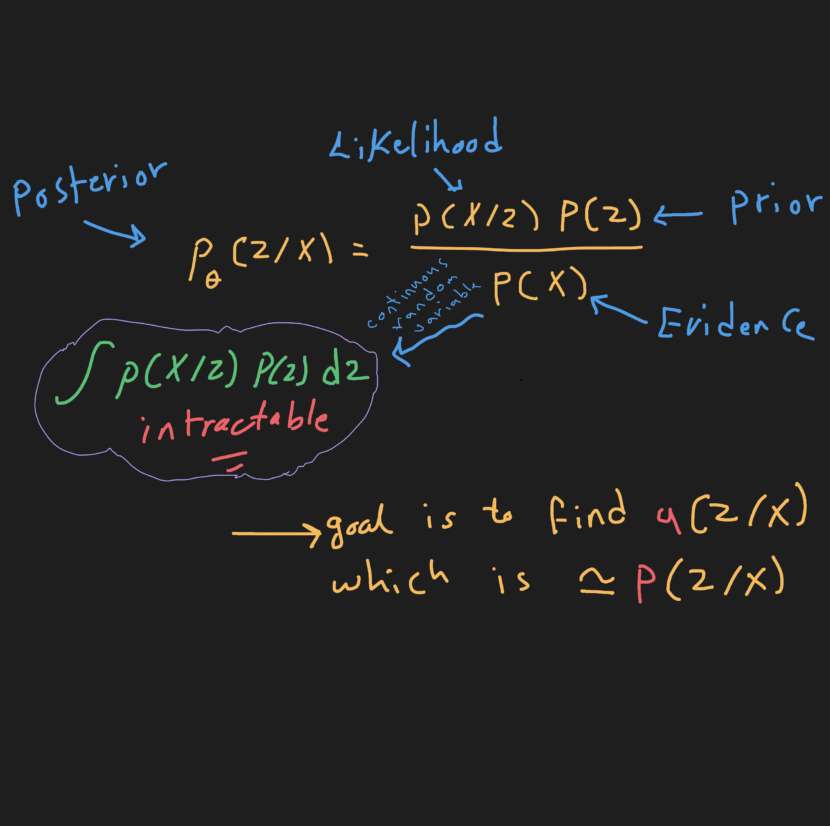 Likelihood
Posterior
p(X/z) P(z)
Prior
Pθ(z/X) =
P(X)
continuous
random
variable
Evidence
∫ p(X/z) P(z) dz
intractable
→ goal is to find q(z/X)
which is ≃ P(z/X)